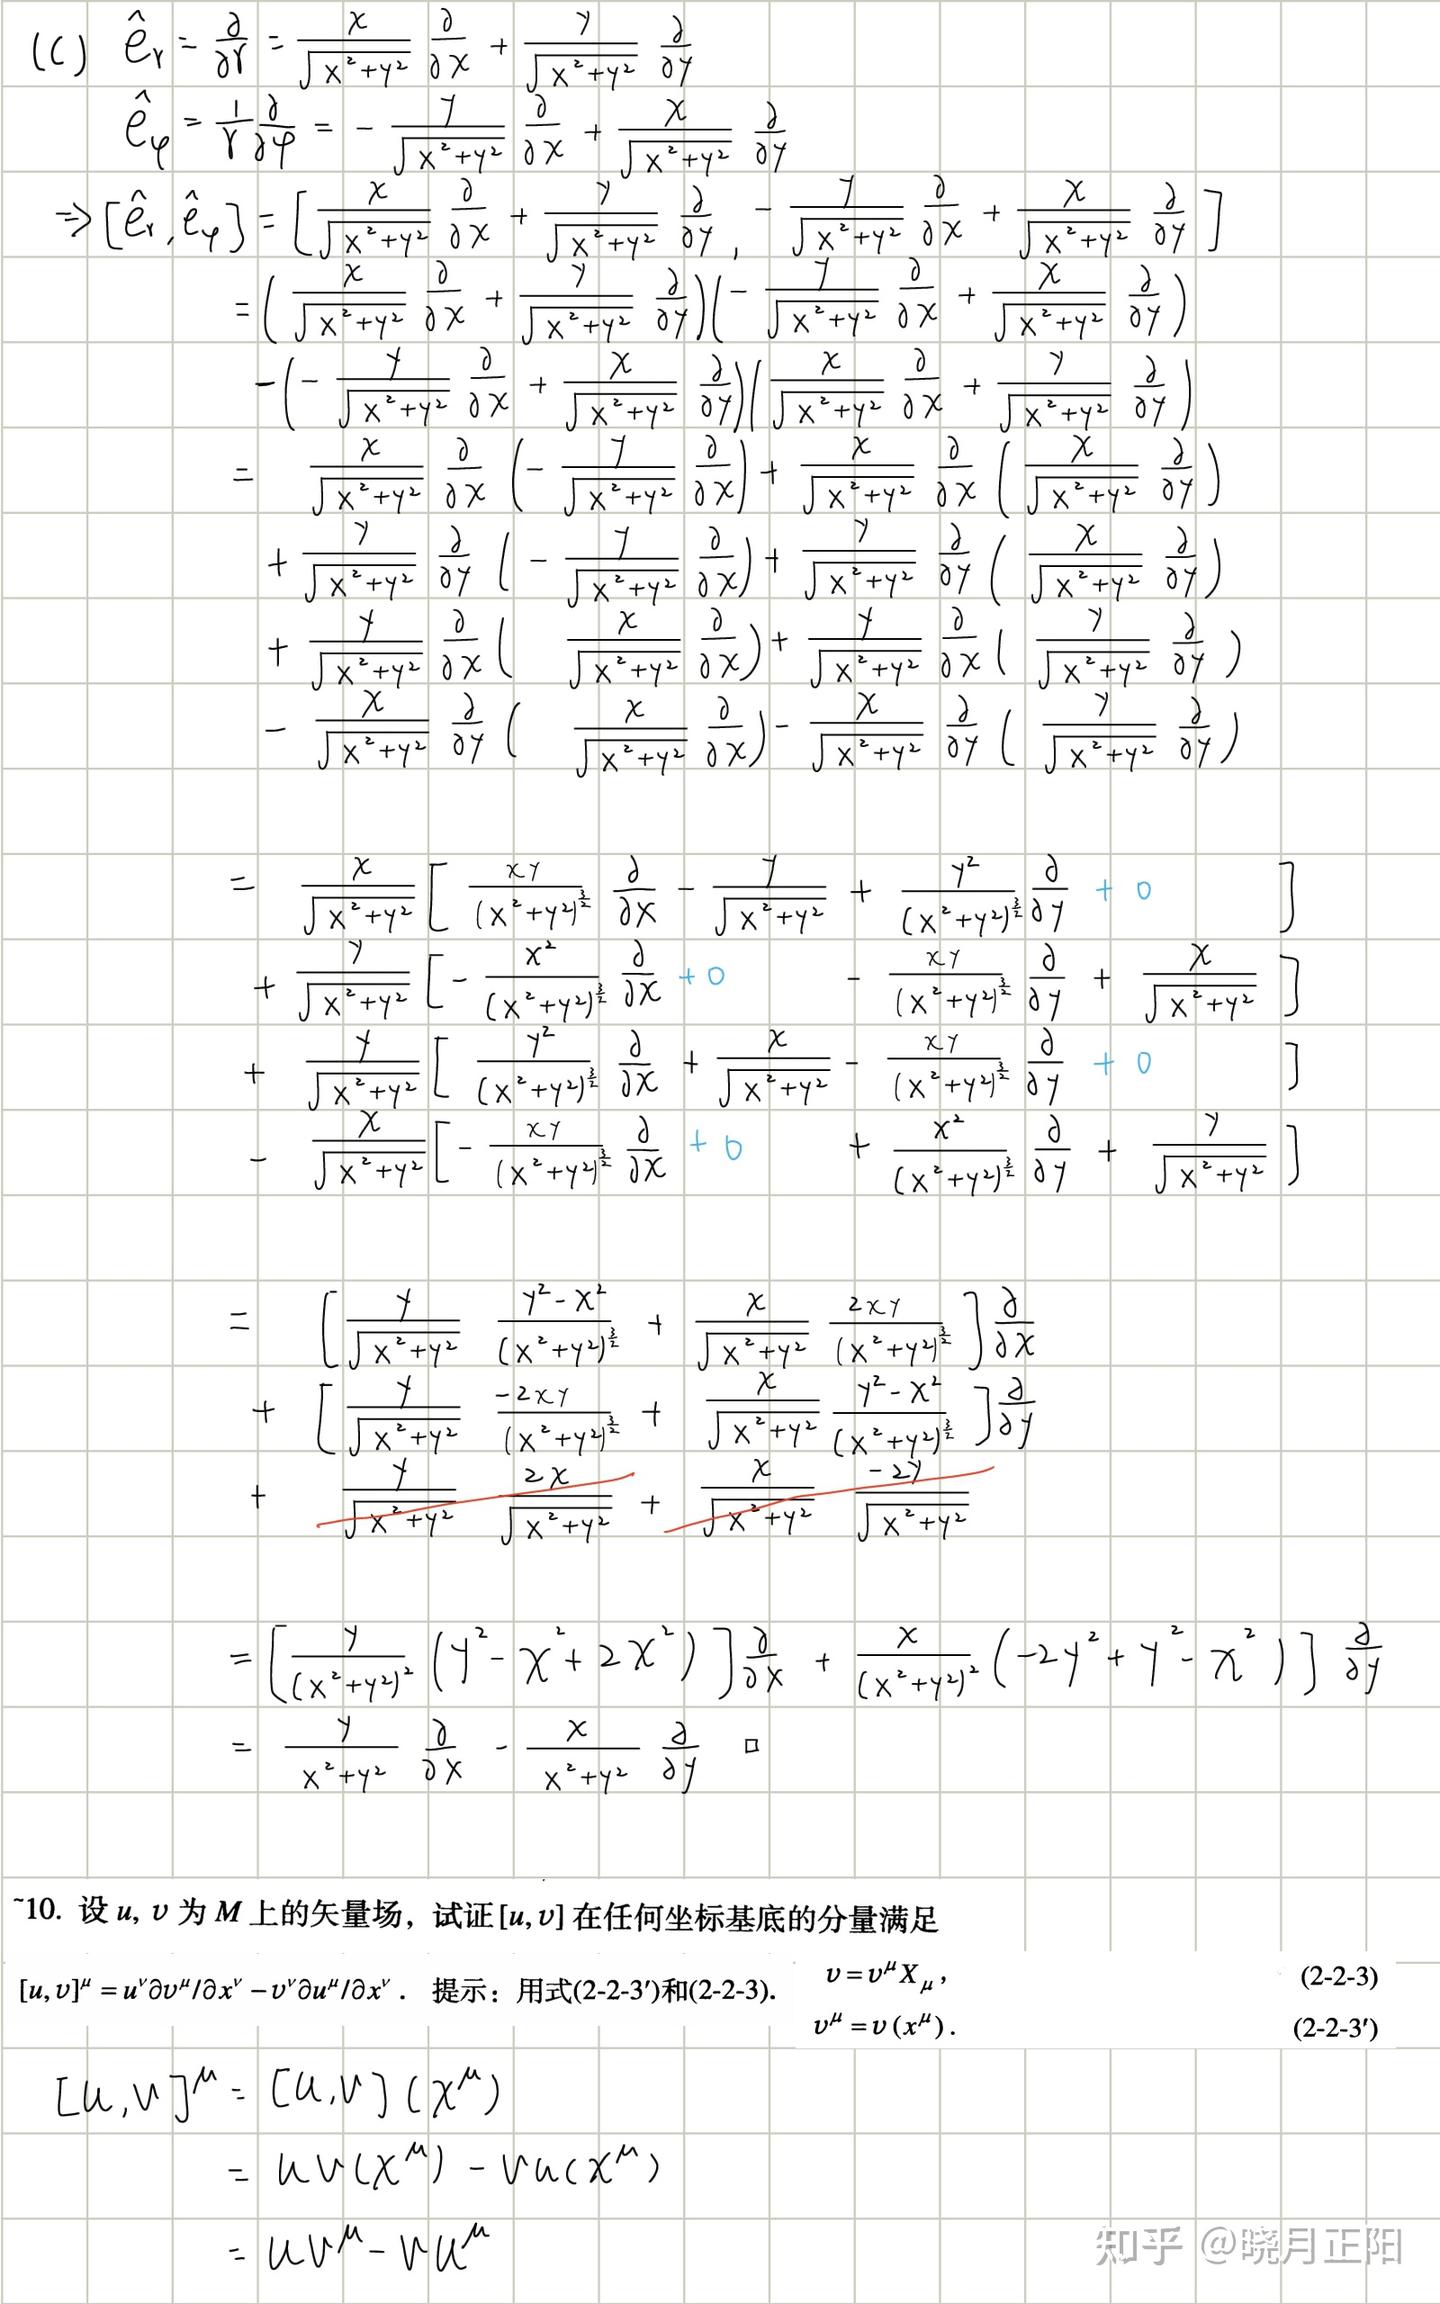 (c) ê_r = ∂/∂r = x/√(x²+y²) ∂/∂x + y/√(x²+y²) ∂/∂y
ê_φ = 1/r ∂/∂φ = - y/√(x²+y²) ∂/∂x + x/√(x²+y²) ∂/∂y
⇒ [ê_r, ê_φ] = [x/√(x²+y²) ∂/∂x + y/√(x²+y²) ∂/∂y, - y/√(x²+y²) ∂/∂x + x/√(x²+y²) ∂/∂y]
= (x/√(x²+y²) ∂/∂x + y/√(x²+y²) ∂/∂y)(- y/√(x²+y²) ∂/∂x + x/√(x²+y²) ∂/∂y)
- (- y/√(x²+y²) ∂/∂x + x/√(x²+y²) ∂/∂y)(x/√(x²+y²) ∂/∂x + y/√(x²+y²) ∂/∂y)
= x/√(x²+y²) ∂/∂x (- y/√(x²+y²) ∂/∂x) + x/√(x²+y²) ∂/∂x (x/√(x²+y²) ∂/∂y)
+ y/√(x²+y²) ∂/∂y (- y/√(x²+y²) ∂/∂x) + y/√(x²+y²) ∂/∂y (x/√(x²+y²) ∂/∂y)
+ y/√(x²+y²) ∂/∂x (x/√(x²+y²) ∂/∂x) + y/√(x²+y²) ∂/∂x (y/√(x²+y²) ∂/∂y)
- x/√(x²+y²) ∂/∂y (x/√(x²+y²) ∂/∂x) - x/√(x²+y²) ∂/∂y (y/√(x²+y²) ∂/∂y)
= x/√(x²+y²) [xy/(x²+y²)^(3/2) ∂/∂x - y/√(x²+y²) + y²/(x²+y²)^(3/2) ∂/∂y + 0]
+ y/√(x²+y²) [- x²/(x²+y²)^(3/2) ∂/∂x + 0 - xy/(x²+y²)^(3/2) ∂/∂y + x/√(x²+y²)]
+ y/√(x²+y²) [y²/(x²+y²)^(3/2) ∂/∂x + x/√(x²+y²) - xy/(x²+y²)^(3/2) ∂/∂y + 0]
- x/√(x²+y²) [- xy/(x²+y²)^(3/2) ∂/∂x + 0 + x²/(x²+y²)^(3/2) ∂/∂y + y/√(x²+y²)]
= [y/√(x²+y²) (y²-x²)/(x²+y²)^(3/2) + x/√(x²+y²) 2xy/(x²+y²)^(3/2)] ∂/∂x
+ [y/√(x²+y²) -2xy/(x²+y²)^(3/2) + x/√(x²+y²) (y²-x²)/(x²+y²)^(3/2)] ∂/∂y
+ y/√(x²+y²) 2x/√(x²+y²) + x/√(x²+y²) -2y/√(x²+y²)
= [y/(x²+y²)² (y²-x²+2x²)] ∂/∂x + x/(x²+y²)² (-2y²+y²-x²)] ∂/∂y
= y/(x²+y²) ∂/∂x - x/(x²+y²) ∂/∂y □
~10. 设 u, v 为 M 上的矢量场，试证[u,v]在任何坐标基底的分量满足
[u,v]^μ = u^ν ∂v^μ/∂x^ν - v^ν ∂u^μ/∂x^ν. 提示：用式(2-2-3′)和(2-2-3).
v = v^μ X_μ, (2-2-3)
v^μ = v(x^μ). (2-2-3′)
[u,v]^μ = [u,v](x^μ)
= uv(x^μ) - vu(x^μ)
= uv^μ - vu^μ
知乎 @晓月正阳